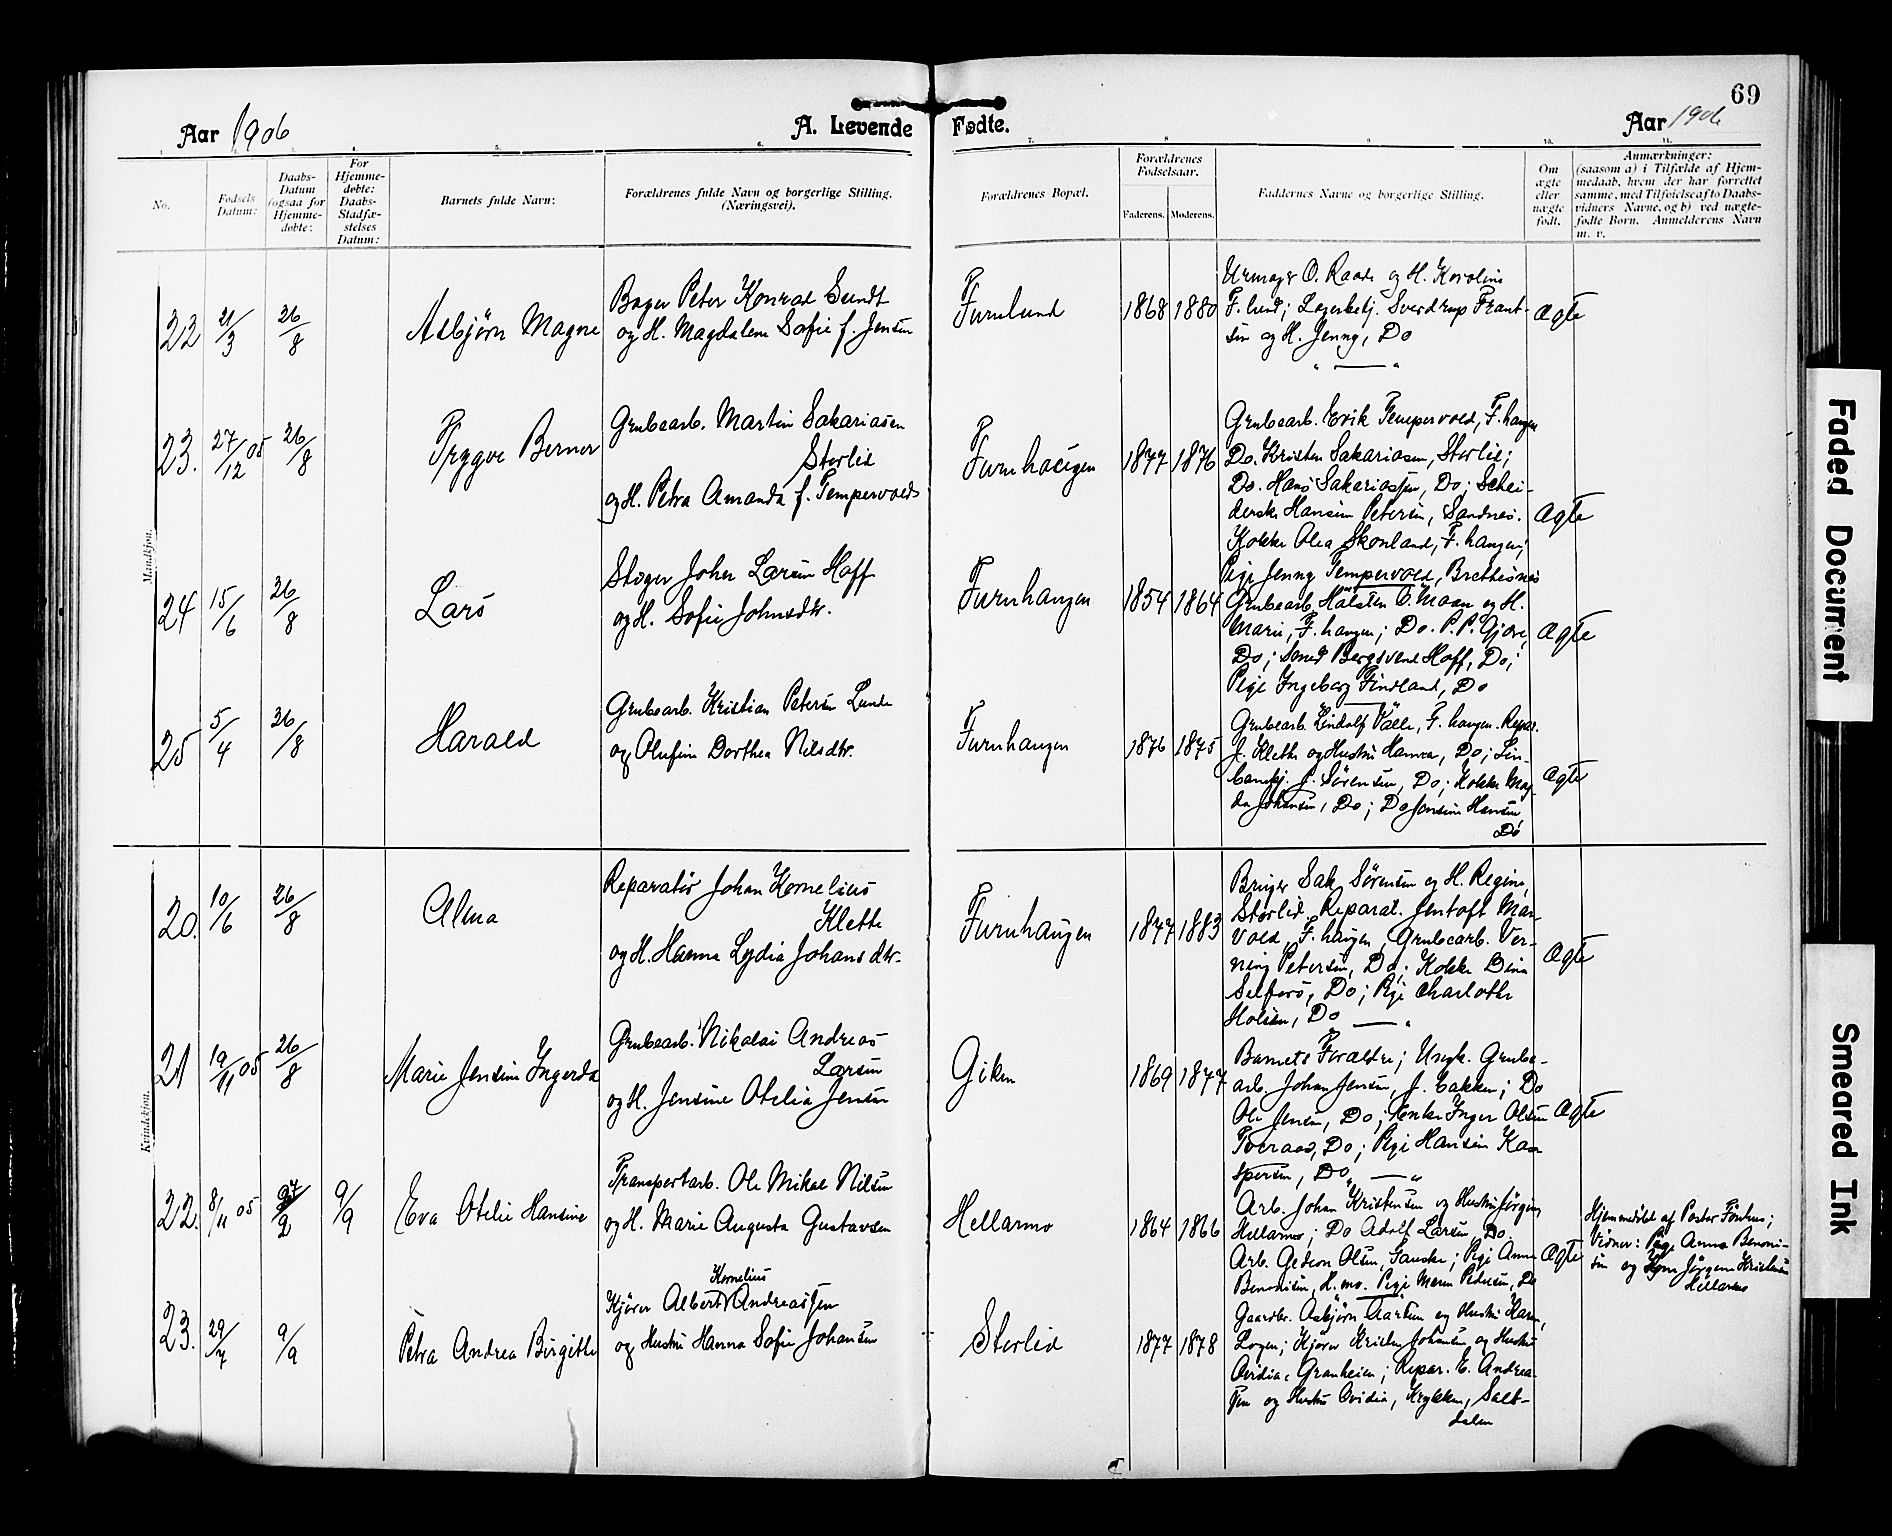 69
Aar 1906
A. Levende Fødte.
Aar 1906
No.
Fødsels Datum:
Daabs-Datum (ogsaa for Hjemmedøbte:
For Hjemmedøbte: Daabs-Stadfæstelses Datum:
Barnets fulde Navn:
Forældrenes fulde Navn og borgerlige Stilling. (Næringsvei).
Forældrenes Bopæl.
Forældrenes Fødselsaar.
Faderens. Moderens.
Faddernes Navne og borgerlige Stilling.
Om ægte eller uægte født.
Anmærkninger:
(saasom a) i Tilfælde af Hjemmedaab, hvem der har forrettet samme, med Tilføielse af to Daabsvidners Navne, og b) ved uægtefødte Børn. Anmelderens Navn m. v.
Mandkjøn.
22 21/3 26/8 Asbjørn Magne
Bager Peter Konrad Sundt
og H. Magdalene Sofie f. Jensen
Furulund 1868 1880
Urmager O. Raade og H. Karoline
F. lund; Lagerbetj. Sverdrup Frant-
sen og H. Jenny, Do
Ægte
23. 27/12 05 26/8 Trygve Berner
Grubearb. Martin Sakariasen
Storlid
og H. Petra Amanda f. Tempervold
Furuhaugen 1877 1876
Grubearb. Erik Tempervold, F. haugen
Do. Kristen Sakariasen, Storlid;
Do. Hans Sakariassen, Do;
derske Hansine Petersen, Sandnes.
Kokke Olea Skonland, F. haugen;
Pige Jenny Tempervold, Brettesnes
Ægte
24 15/6 26/8 Lars
Stiger Johan Larsen Hoff
og H. Sofie Johnsdtr.
Furuhaugen 1854 1864
Grubearb. Halsten O. Moan og H.
Marie, F. haugen; Do. P. P. Gjøre,
Do; Smed Bergsvend Hoff, Do;
Pige Ingeborg Findland, Do
Ægte
25 5/4 26/8 Harald
Grubearb. Kristian Petersen Lunde
og Olufine Dorthea Nilsdtr.
Furuhaugen 1876 1875
Grubearb. Lindolf Valle, F. haugen. Repar.
J. Klette og Hustru Hanna, Do; Lin-
banebj. J. Sørensen, Do; Kokke Mag-
da Johansen, Do; Do Jensine Hansen,
Do
Ægte
Kvindekjøn.
20. 10/6 26/8 Alma
Reparatør Johan Kornelius
Klette
og H. Hanna Lydia Johansdtr.
Furuhaugen 1877 1883
Bruger Sak. Sørensen og H. Regine,
Storlid. Reparat. Jentoft Mar-
vold, F. haugen, Grubearb. Ver-
ning Petersen, Do; Kokke Dina
Selfors, Do; Pige Charlothe
Holsen, Do
Ægte
21 19/11 05 26/8 Marie Jensine Ingerda
Grubearb. Nikolai Andreas
Larsen
og H. Jensine Otelia Jensen
Giken 1869 1877
Barnets Forældre; Ungk. Grube-
arb. Johan Jensen, J. bakken; Do
Ole Jensen, Do; Enke Inger Olsen
Tveraas, Do; Pige Hansine Kas-
persen, Do
Ægte
22. 8/11 05 9/9 Eva Otelie Hansine
Transportarb. Ole Mikal Nilsen
og H. Marie Augusta Gustavsen
Hellarmo 1864 1866
Arb. Johan Kristensen og Hustru Jørgine,
Hellarmo; Do Adolf Larsen, Do.
Arb. Gedeon Olsen, Sauske; Pige Anna
Benonisen, H. mo. Pige Maren Pedersen, Do
Ægte
Hjemmedøbt af Pastor Fonhus;
Vidner: Pige Anna Benoni-
sen og Kone Jørgine Kristensen
Hellarmo
23. 29/7 9/9 Petra Andrea Birgitte
Kjører Albert Kornelius Andreassen
og Hustru Hanna Sofie Johansen
Storlid 1877 1878
Gaardbr. Asbjørn Aarsen og Hustru Karen,
Kjører Kristen Johansen og Hustru
Ovidia, Granheien; Repar. E. Andrea-
sen og Hustru Ovidia, Krykken, Salt-
dalen
Faded Document
Smeared Ink